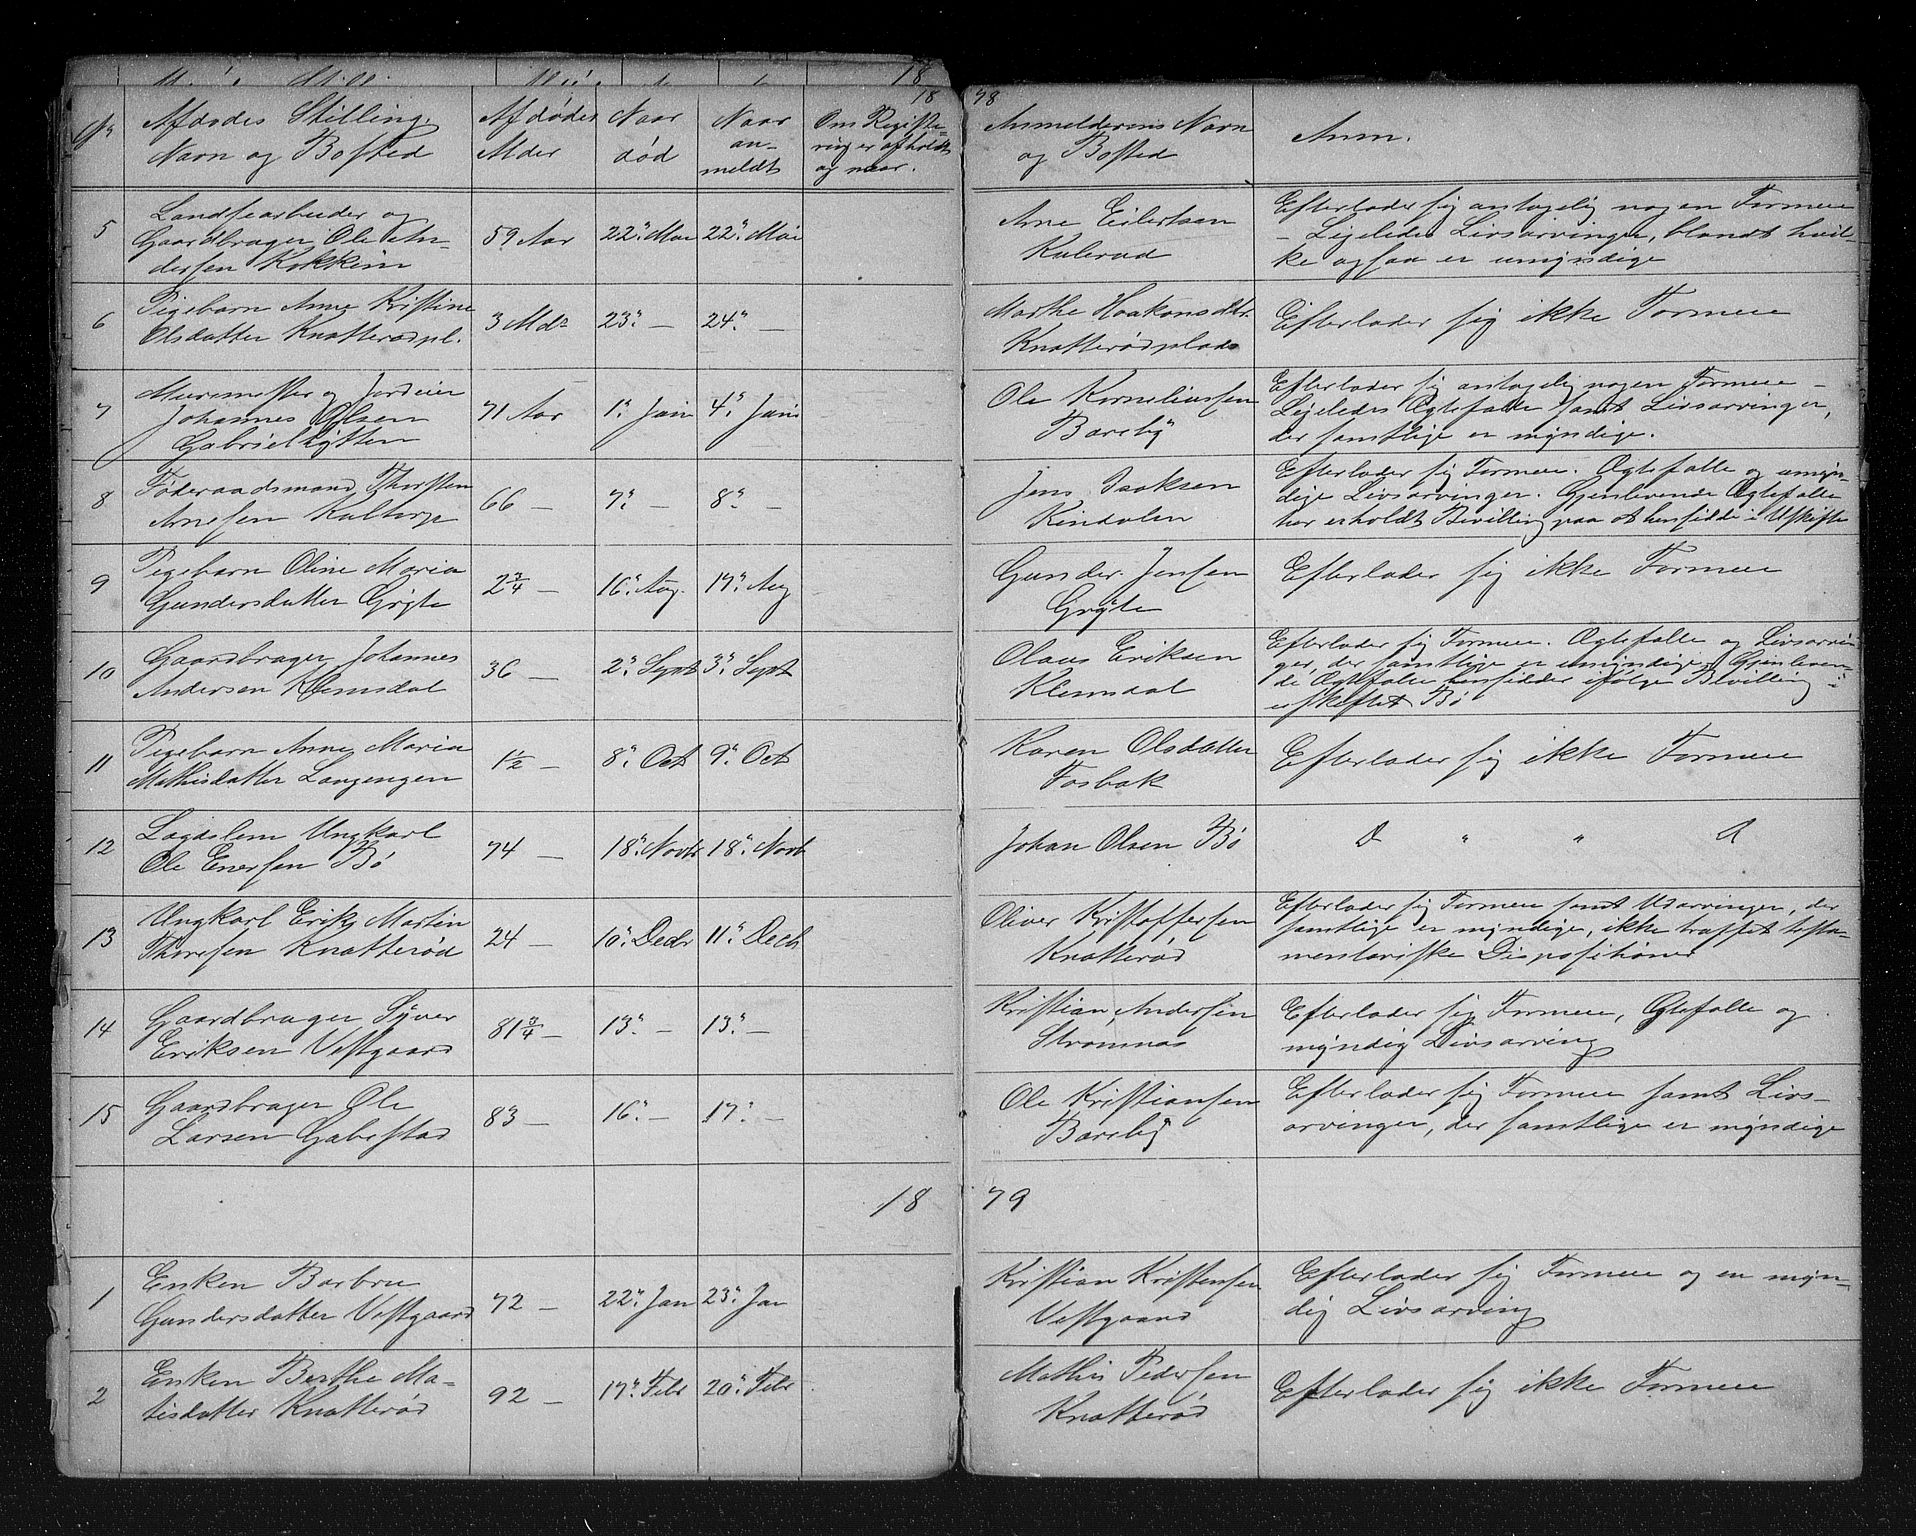 18
18 78
No
Afdødes Stilling,
Navn og Bosted
Afdødes
Alder
Naar
død
Naar
an-
meldt
Om Registe-
ring er afholdt
og naar.
Anmelderens Navn
og Bosted
Anm.
5
Gaardbruger Ole An-
dersen Kokkim
59 Aar
22. Mai
22. Mai
Arne Eilertsen
Kalerød
Efterlader sig antagelig nogen Formue
- Ligeledes Livsarvinger, blandt hvil-
ke ogsaa er umyndige
6
Pigebarn Anne Kristine
Olsdatter Knatterødpl.
3 Mdr
23. -
24. -
Marthe Haakonsdtr.
Knatterødplads
Efterlader sig ikke Formue
7
Muremester og Jordeier
Johannes Olsen
Gabrielhytten
71 Aar
1. Juni
4. Juni
Ole Korneliussen
Barsby
Efterlader sig antagelig nogen Formue -
Ligeledes Ægtefælle samt Livsarvinger,
der samtlige er myndige.
8
Føderaadsmand Thorsten
Arnesen Kaltorp
66 -
7. -
8. -
Jens Isaksen
Kindalen
Efterlader sig Formue. Ægtefælle og umyn-
dige Livsarvinger. Gjenlevende Ægtefælle
har erholdt Bevilling paa at hensidde i Uskifte
9
Pigebarn Oline Maria
Gundersdatter Gryte
2 3/4 -
16. Aug.
17. Aug
Gunder Jensen
Gryte
Efterlader sig ikke Formue
10
Gaardbruger Johannes
Andersen Klemsdal
36 -
2. Sept
3. Sept
Olaus Eriksen
Klemsdal
Efterlader sig Formue. Ægtefælle og Livsarvin-
ger, der samtlige er umyndige. Gjenleven-
de Ægtefælle hensidder ifølge Bevilling i
uskiftet Bo
11
Pigebarn Anne Maria
Mathisdatter Langengen
1 1/2 -
8. Oct
9. Oct
Karen Olsdatter
Fosbæk
Efterlader sig ikke Formue
12
Lægdslem Ungkarl
Ole Enersen Bø
74 -
18. Novb
18. Novb
Johan Olsen Bø
D " " o
13
Ungkarl Erik Martin
Thoresen Knatterød
24 -
10. Decb
11. Decb
Oliver Kristoffersen
Knatterød
Efterlader sig Formue samt Udarvinger, der
samtlige er myndige, ikke truffet testa-
mentariske Dispositioner
14
Gaardbruger Syver
Eriksen Vestgaard
81 3/4 -
13. -
13. -
Kristian Andersen
Strømnæs
Efterlader sig Formue, Ægtefælle og
myndig Livsarving
15
Gaardbruger Ole
Larsen Gabestad
83 -
16. -
17. -
Ole Kristiansen
Barsby
Efterlader sig Formue samt Livs-
arvinger, der samtlige er myndige
18 79
1
Enken Barbru
Gundersdatter Vestgaard
72 -
22. Jan
23. Jan
Kristian Kristensen
Vestgaard
Efterlader sig Formue og en myn-
dig Livsarving
2
Enken Berthe Ma-
tisdatter Knatterød
92 -
17. Febr
20. Febr
Mathis Pedersen
Knatterød
Efterlader sig ikke Formue